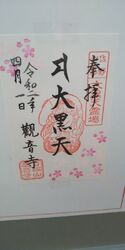 奉拝
大黒天
令和二年
四月一日
觀音寺